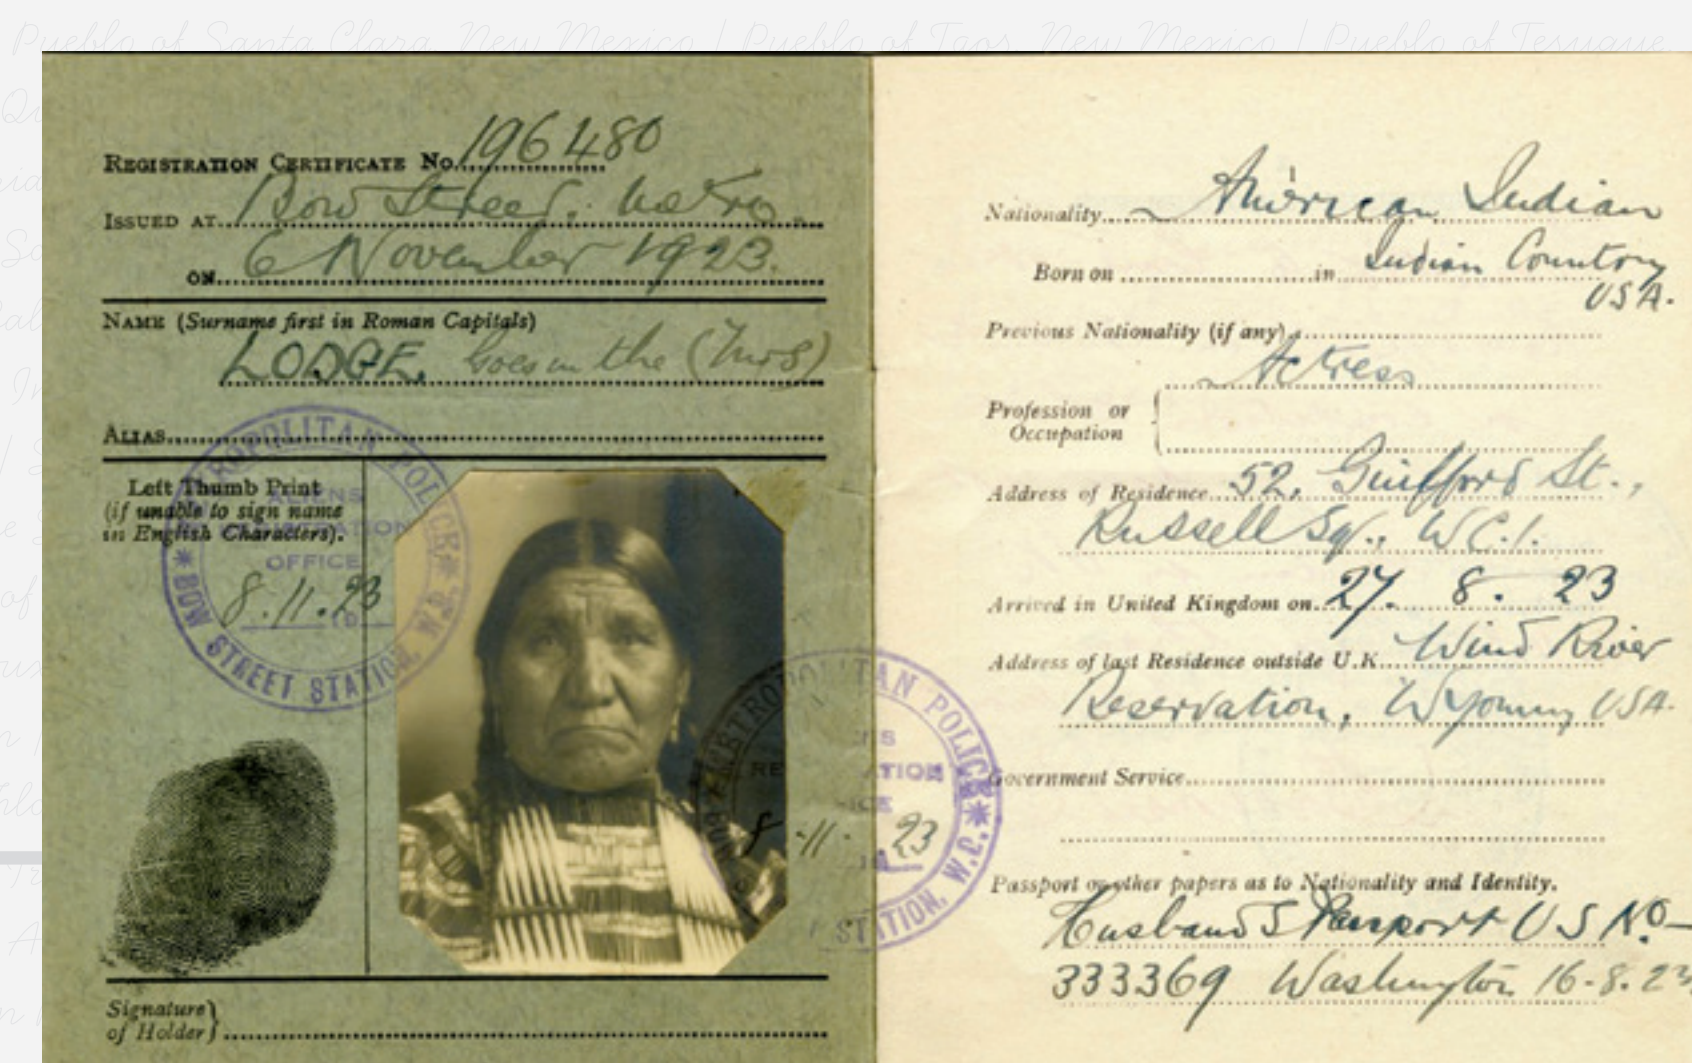 Pueblo of Santa Clara, New Mexico | Pueblo of Taos, New Mexico | Pueblo of Tesuque
REGISTRATION CERTIFICATE No. 196480
ISSUED AT Bow Street, Metro
ON 6 November 1923.
NAME (Surname first in Roman Capitals)
LODGE, Goes in the (Mrs)
ALIAS
Left Thumb Print
(if unable to sign name
in English Characters).
METROPOLITAN POLICE
ALIENS
REGISTRATION
OFFICE
8.11.23
BOW STREET STATION, W.C.
Signature
of Holder
METROPOLITAN POLICE
8-11-23
STATION, W.C.
Nationality American Indian
Born on in Indian Country
USA.
Previous Nationality (if any)
Actress
Profession or
Occupation
Address of Residence 52, Guilford St.,
Russell Sq., WC.1.
Arrived in United Kingdom on 27. 8. 23
Address of last Residence outside U.K. Wind River
Reservation, Wyoming USA.
Government Service
Passport or other papers as to Nationality and Identity.
Husband's Passport US No-
333369 Washington 16-8-23